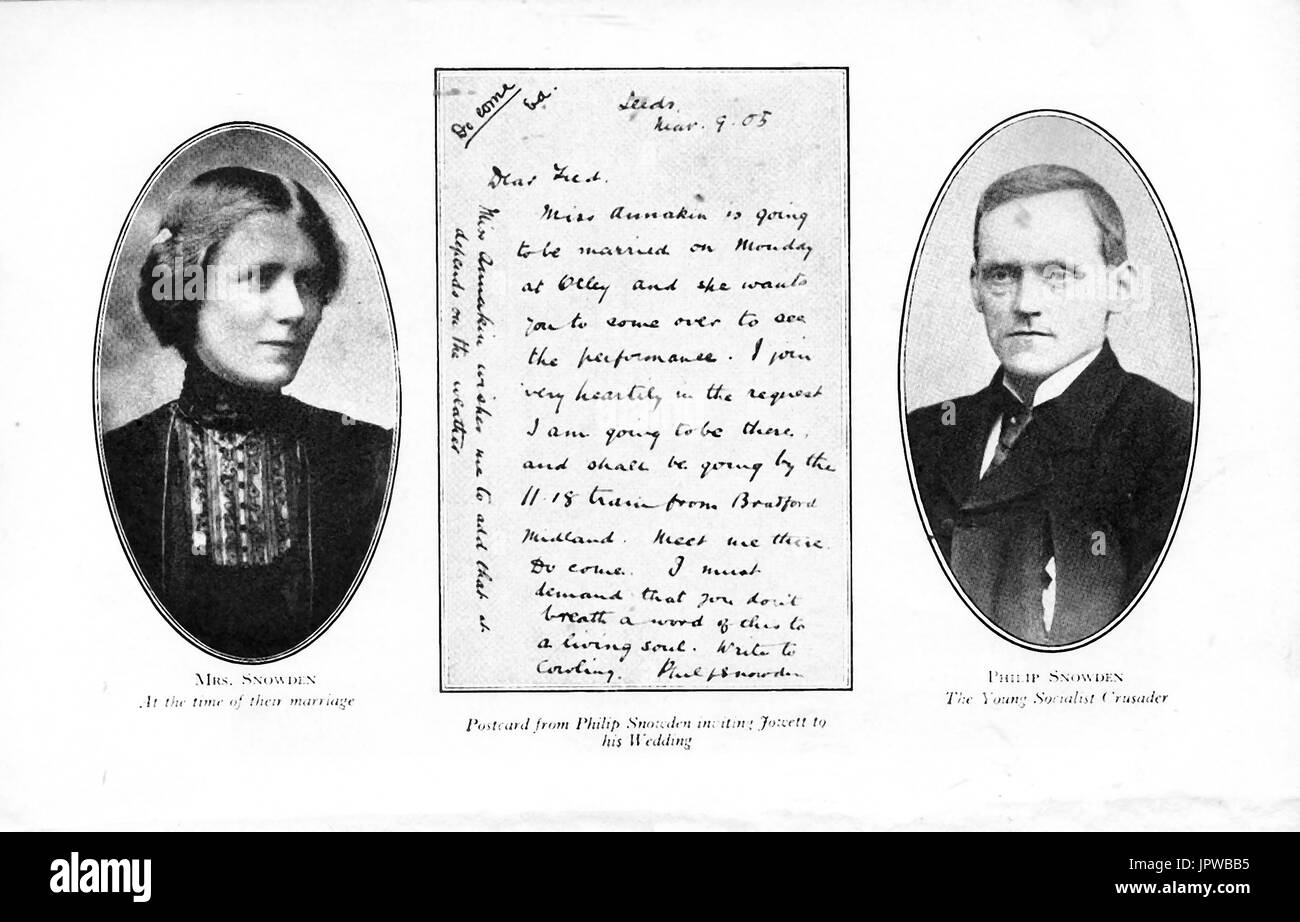 Do come
Leeds,
Mar. 9. 05
Dear Fred.
Miss Annakin is going
to be married on Monday
at Otley and she wants
you to come over to see
the performance. I join
very heartily in the request
I am going to be there,
and shall be going by the
11.18 train from Bradford
Midland. Meet me there.
Do come. I must
demand that you don't
breath a word of this to
a living soul. Write to
Cowling. Philip Snowden
Miss Annakin wishes me to add that it
depends on the weather
MRS. SNOWDEN
At the time of their marriage
Postcard from Philip Snowden inviting Jowett to
his Wedding
PHILIP SNOWDEN
The Young Socialist Crusader
alamy stock photo
alamy
Image ID: JPWBB5
www.alamy.com